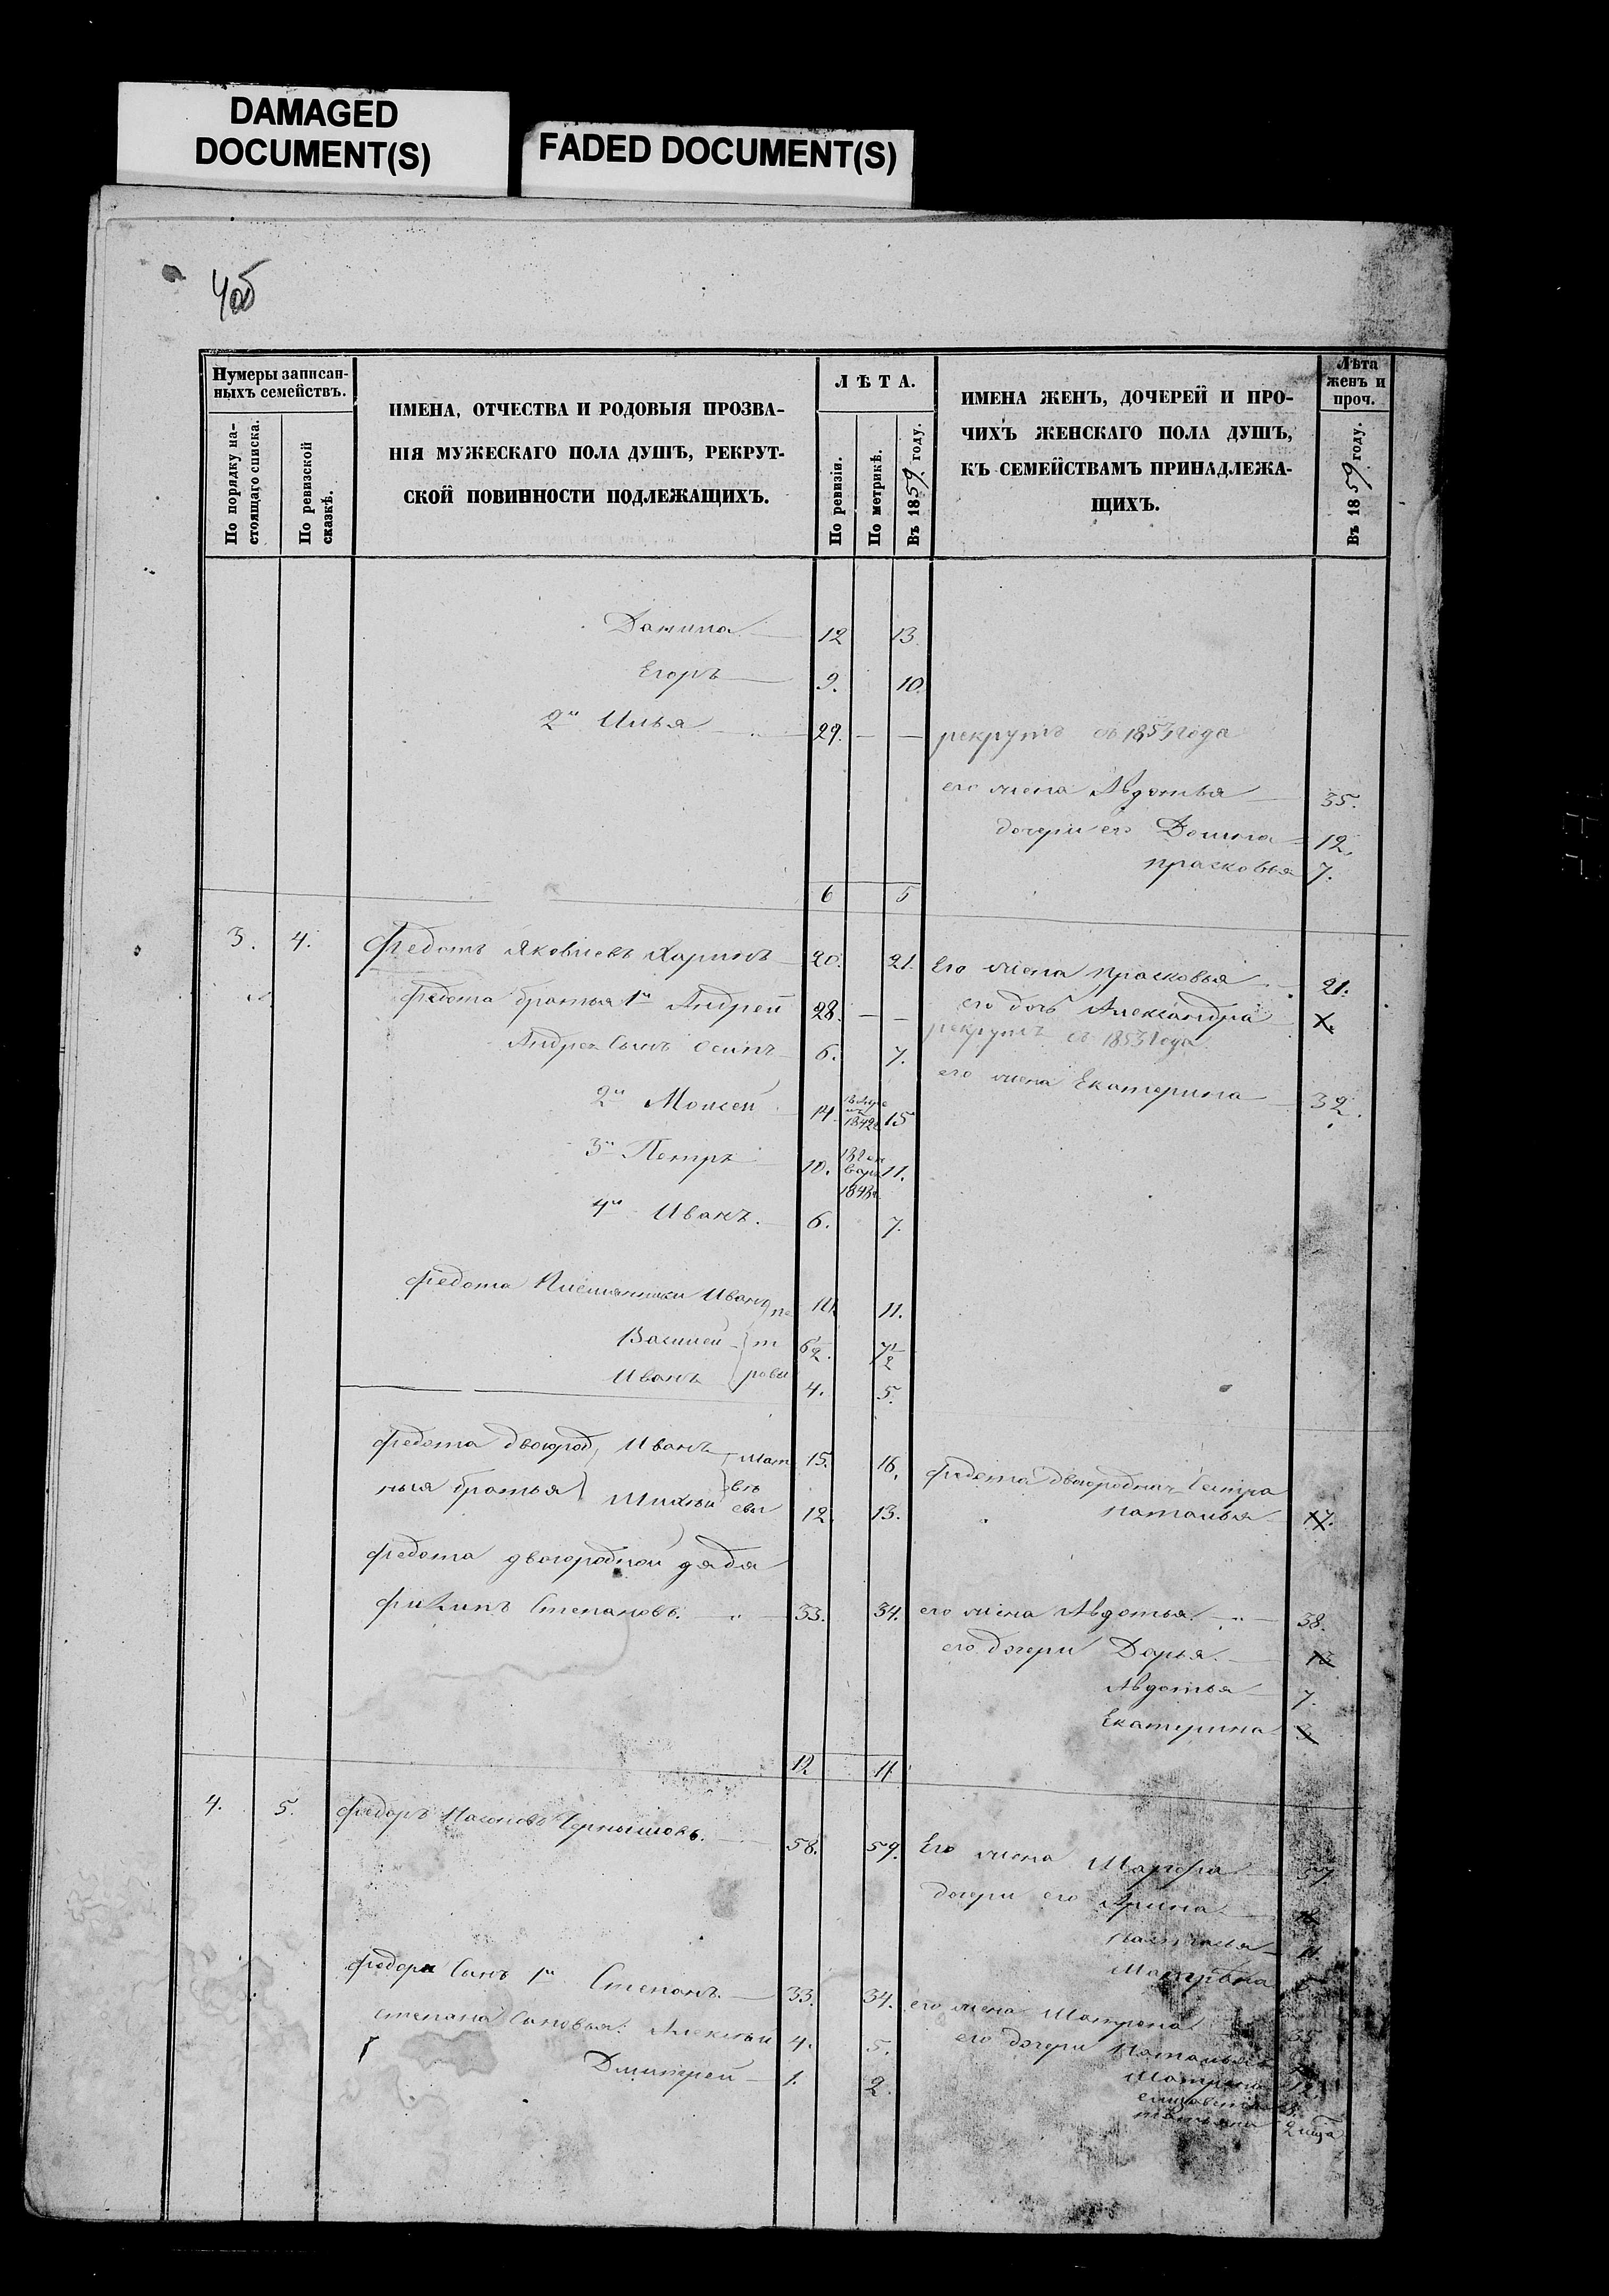 DAMAGED
DOCUMENT(S)
FADED DOCUMENT(S)
4об
Нумеры записан-
ныхъ семействъ.
По порядку на-
стоящаго списка.
По ревизской
сказкѣ.
ИМЕНА, ОТЧЕСТВА И РОДОВЫЯ ПРОЗВА-
НІЯ МУЖЕСКАГО ПОЛА ДУШЪ, РЕКРУТ-
СКОЙ ПОВИННОСТИ ПОДЛЕЖАЩИХЪ.
ЛѢТА.
По ревизіи.
По метрикѣ.
Въ 1859 году.
ИМЕНА ЖЕНЪ, ДОЧЕРЕЙ И ПРО-
ЧИХЪ ЖЕНСКАГО ПОЛА ДУШЪ,
КЪ СЕМЕЙСТВАМЪ ПРИНАДЛЕЖА-
ЩИХЪ.
Лѣта
женъ и
проч.
Въ 1859 году.
12 13
Егоръ 9. 10.
2й Илья 29. — — рекрутъ съ 1853 года
его жена Авдотья 35.
дочери его Домна 12.
прасковья 7.
6 5
3. 4. Федотъ Яковлевъ Харинъ 20. 21. Его жена прасковья 21.
Федота братья 1й Андрей 28. — — его дочь Александра
рекрутъ съ 1853 года
Андрея сынъ Осипъ 6. 7.
его жена Екатерина 32.
2й Моисей 14. 1842 15
3й Петръ 10. 11.
4й Иванъ. 6. 7.
Федота Племянники Иванъ 10. 11.
Василей 6½. 7½
Иванъ 4. 5.
Федота двоюрод Иванъ 15. 16. Федота двоюродная сестра
ныя братья 12. 13. наталья 17.
Федота двоюродной дядя
Филипъ Степановъ. 33. 34. его жена Авдотья. 38.
его дочери Дарья.
Авдотья 7.
Екатерина 3
12 11
4. 5. Федоръ Чернышовъ. 58. 59. Его жена Марфа 57.
дочери его Арина
наталья 11.
Матрена
Федора Сынъ 1й Степанъ. 33. 34. его жена Матрена 35
степана Сыновья: Алексѣй 4. 5. его дочери Наталья
Дмитрей 1. 2. Матрена 12